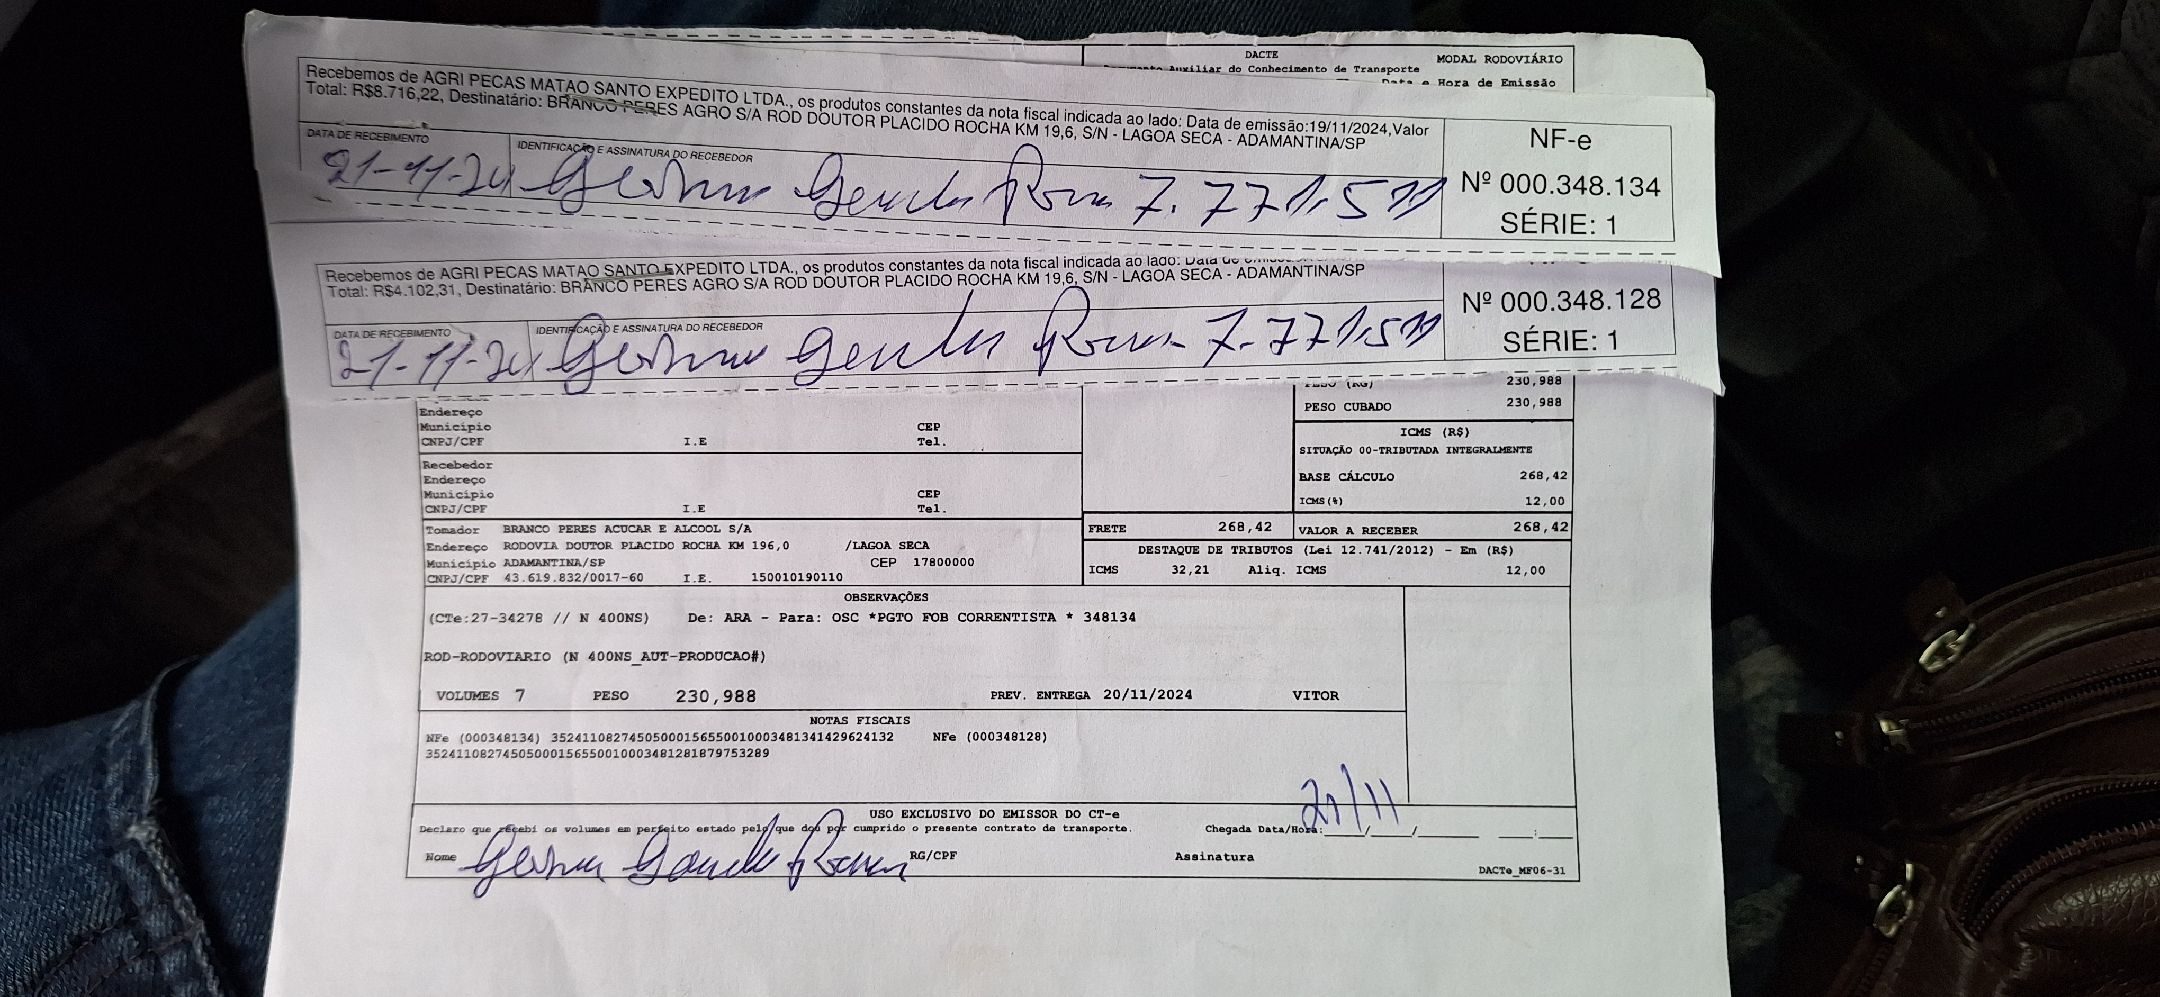 DACTE
MODAL RODOVIÁRIO
Auxiliar do Conhecimento de Transporte
Data e Hora de Emissão
Recebemos de AGRI PECAS MATAO SANTO EXPEDITO LTDA., os produtos constantes da nota fiscal indicada ao lado: Data de emissão:19/11/2024,Valor
Total: R$8.716,22, Destinatário: BRANCO PERES AGRO S/A ROD DOUTOR PLACIDO ROCHA KM 19,6, S/N - LAGOA SECA - ADAMANTINA/SP
NF-e
Nº 000.348.134
SÉRIE: 1
DATA DE RECEBIMENTO
IDENTIFICAÇÃO E ASSINATURA DO RECEBEDOR
21-11-24 7.771.511
Recebemos de AGRI PECAS MATAO SANTO EXPEDITO LTDA., os produtos constantes da nota fiscal indicada ao lado:
Total: R$4.102,31, Destinatário: BRANCO PERES AGRO S/A ROD DOUTOR PLACIDO ROCHA KM 19,6, S/N - LAGOA SECA - ADAMANTINA/SP
Nº 000.348.128
SÉRIE: 1
DATA DE RECEBIMENTO
IDENTIFICAÇÃO E ASSINATURA DO RECEBEDOR
21-11-24 7.771.511
PESO (KG) 230,988
PESO CUBADO 230,988
Endereço
Município CEP
CNPJ/CPF I.E Tel.
ICMS (R$)
SITUAÇÃO 00-TRIBUTADA INTEGRALMENTE
BASE CÁLCULO 268,42
ICMS(%) 12,00
Recebedor
Endereço
Município CEP
CNPJ/CPF I.E Tel.
Tomador BRANCO PERES ACUCAR E ALCOOL S/A
Endereço RODOVIA DOUTOR PLACIDO ROCHA KM 196,0 /LAGOA SECA
Município ADAMANTINA/SP CEP 17800000
CNPJ/CPF 43.619.832/0017-60 I.E. 150010190110
FRETE 268,42
VALOR A RECEBER 268,42
DESTAQUE DE TRIBUTOS (Lei 12.741/2012) - Em (R$)
ICMS 32,21 Aliq. ICMS 12,00
OBSERVAÇÕES
(CTe:27-34278 // N 400NS) De: ARA - Para: OSC *PGTO FOB CORRENTISTA * 348134
ROD-RODOVIARIO (N 400NS_AUT-PRODUCAO#)
VOLUMES 7 PESO 230,988 PREV. ENTREGA 20/11/2024 VITOR
NOTAS FISCAIS
NFe (000348134) 35241108274505000156550010003481341429624132 NFe (000348128)
35241108274505000156550010003481281879753289
21/11
USO EXCLUSIVO DO EMISSOR DO CT-e
Declaro que recebi os volumes em perfeito estado pelo que dou por cumprido o presente contrato de transporte. Chegada Data/Hora:
Nome RG/CPF Assinatura
DACTe_MF06-31